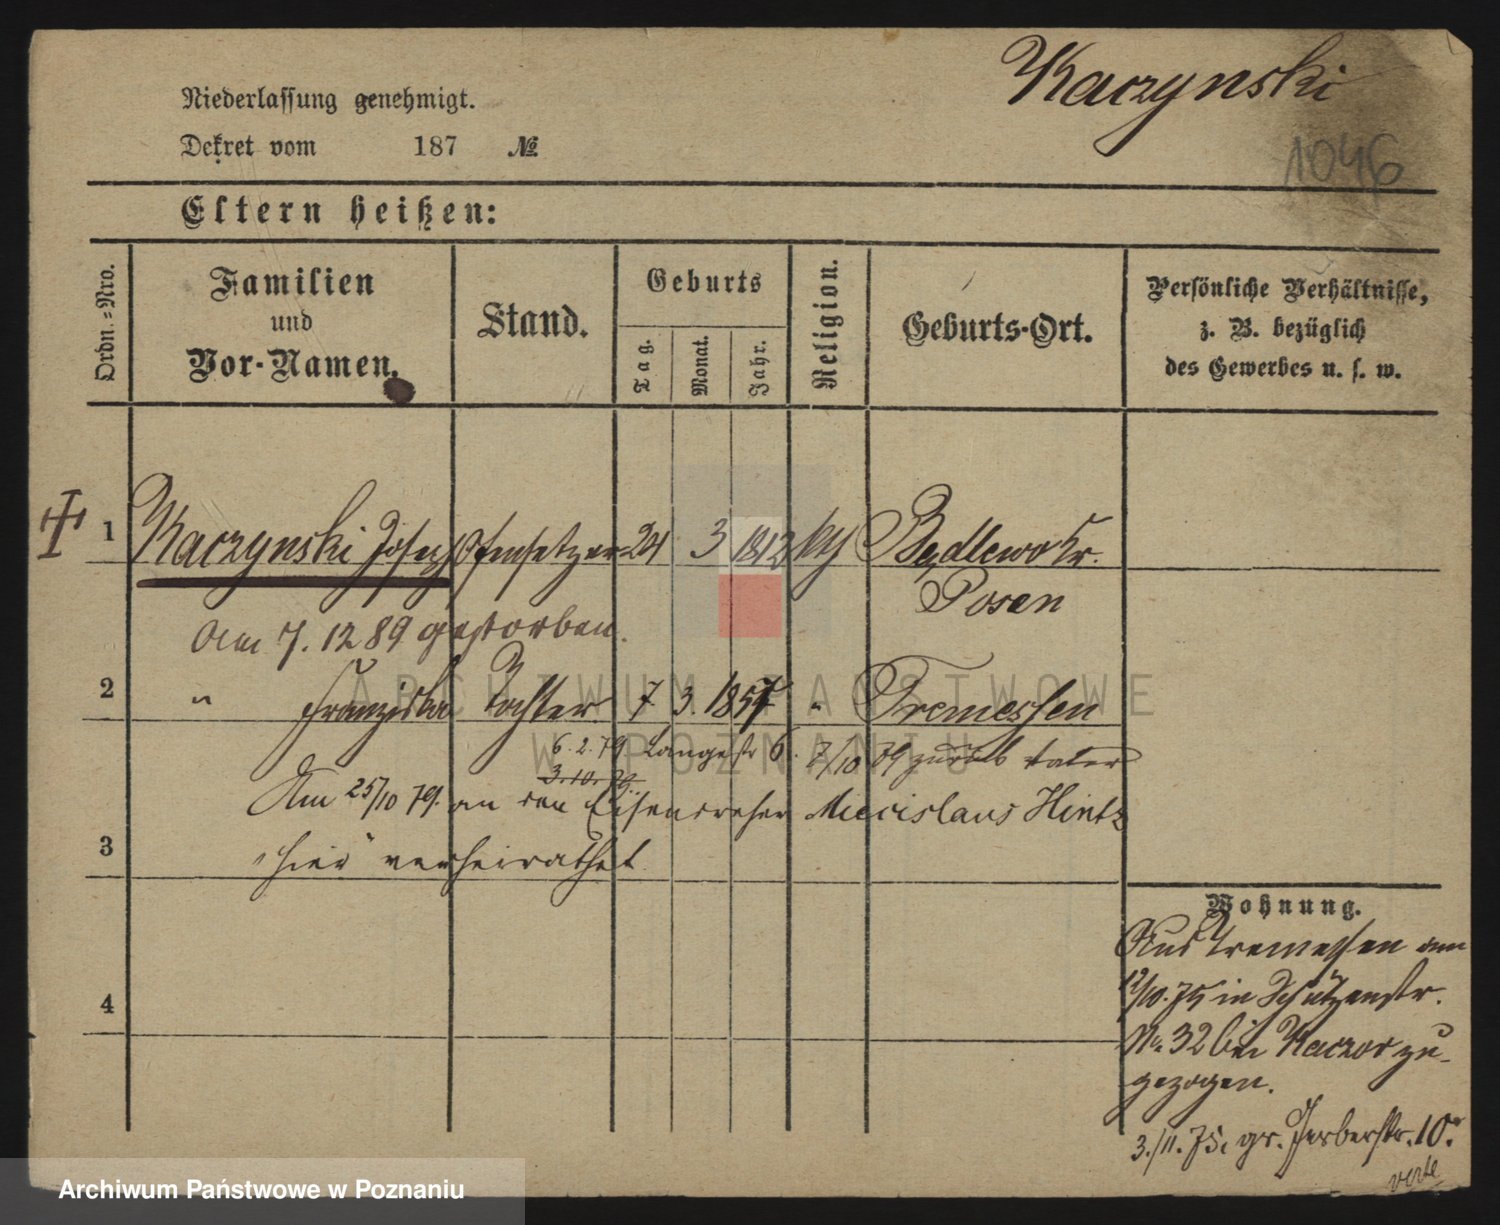 Kaczynski
1046
Niederlassung genehmigt.
Dekret vom 187 №
Eltern heißen:
Ordn.-Nro.
Familien
und
Vor-Namen.
Stand.
Geburts
Tag.
Monat.
Jahr.
Religion.
Geburts-Ort.
Persönliche Verhältnisse,
z. B. bezüglich
des Gewerbes u. s. w.
1 Kaczynski Josep Ofensetzer 24 3 1812 Bedlewo Kr.
Posen
Am 7. 12 89 gestorben.
2 " Franziska Tochter 7 3. 1857 " Tremessen
6. 2. 79 Langestr 6. 7/10 79 zurück Vater
3. 10. 79.
Am 25/10 79. an den Eisendreher Miecislaus Hintz
3 "hier" verheirathet.
4
Wohnung.
Aus Tremessen am
12/10. 75 in Schützenstr.
No 32 bei Kaczor zu-
gezogen.
3./11. 75. gr. Gerberstr. 10.
verte
ARCHIWUM PAŃSTWOWE
W POZNANIU
Archiwum Państwowe w Poznaniu